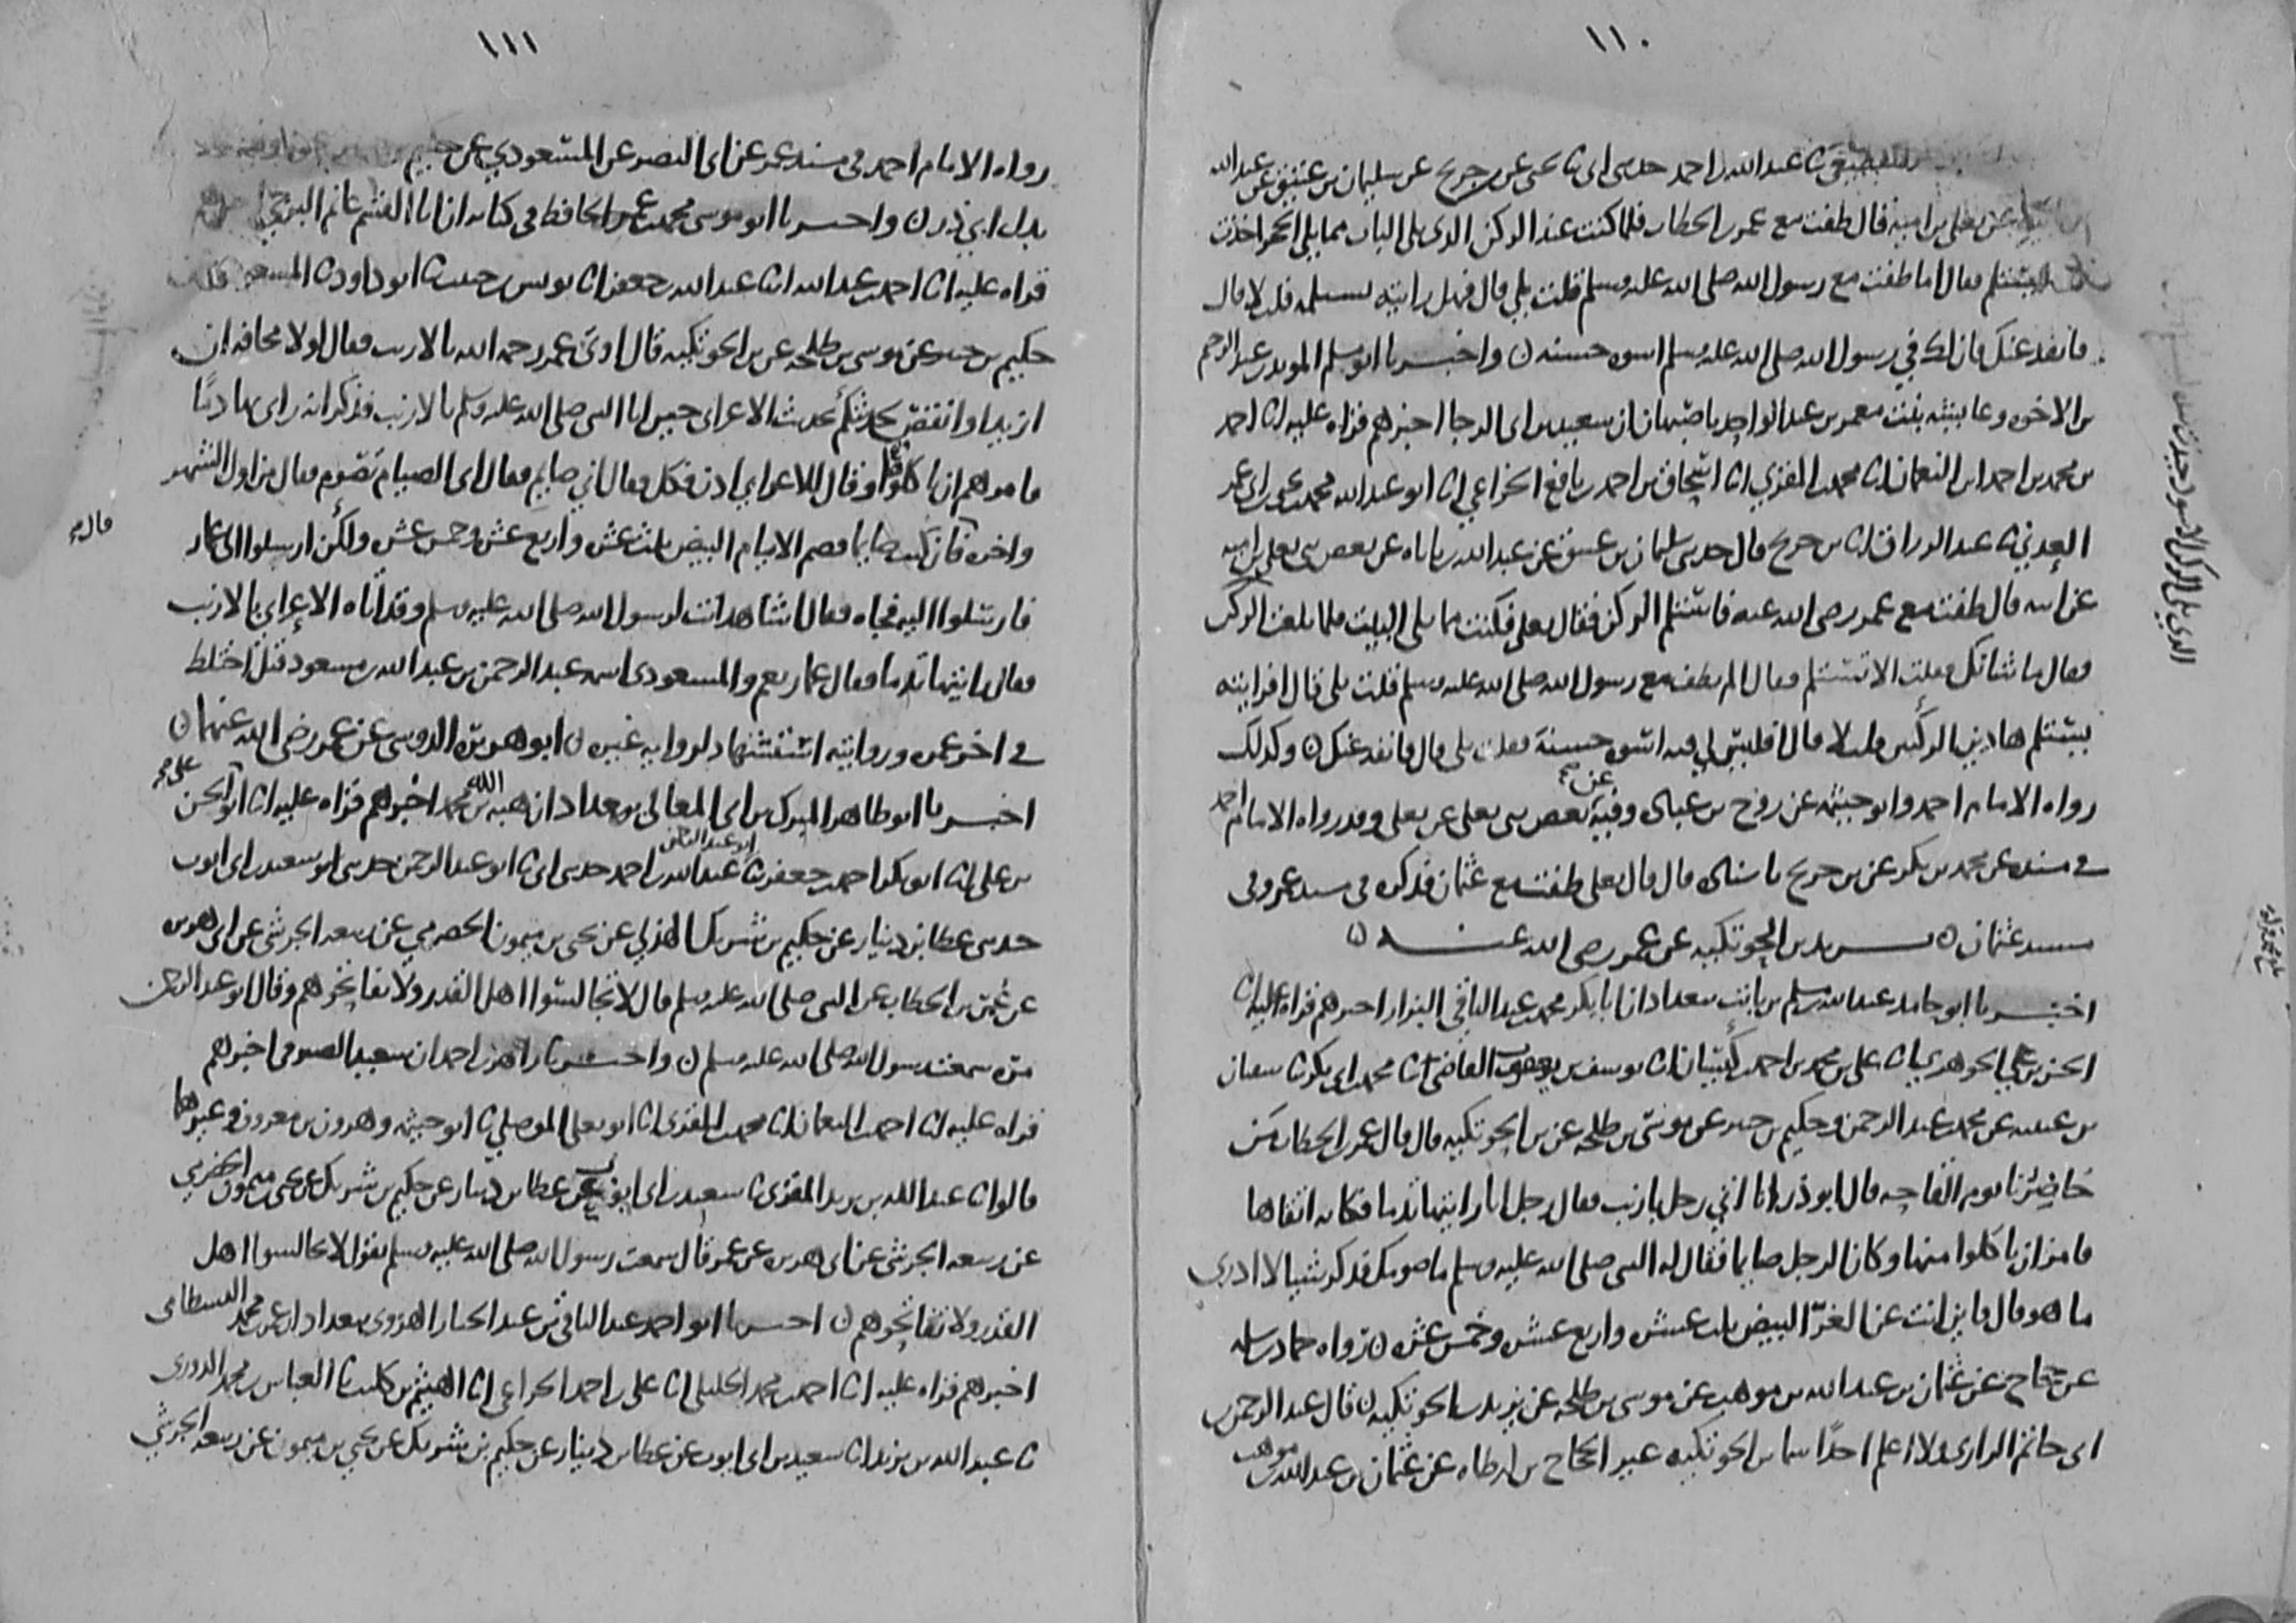 ١١٠
عبد الله بن احمد حدثني ابي ثنا يحيى عن ابن جريج عن سليمان بن عتيق عن عبد الله
عن يعلى بن امية قال طفت مع عمر بن الخطاب فلما كنت عند الركن الذي يلي الباب مما يلي الحجر اخذت
ليستلم فقال اما طفت مع رسول الله صلى الله عليه وسلم قلت بلى قال فهل رايته يستلمه قلت لا قال
فانفذ عنك فان لك في رسول الله صلى الله عليه وسلم اسوة حسنة ن واخبرنا ابو مسلم المويد بن عبد الرحيم
بن الاخوة وعايشة بنت معمر بن عبد الواحد باصبهان ان سعيد بن ابي الرجا اخبرهم قراة عليه انا احمد
بن محمد بن احمد بن النعمان انا محمد بن المقري انا اسحاق بن احمد بن نافع الخزاعي انا ابو عبد الله محمد بن يحيى بن ابي عمر
العدني ثنا عبد الرزاق انا بن جريج قال حدثني سليمان بن عتيق عن عبد الله بن باباه عن بعض بني يعلى بن امية
عن ابيه قال طفت مع عمر رضي الله عنه فاستلم الركن فقال يعلى فكنت مما يلي البيت فلما بلغت الركن
فقال ما شانك فقلت الا تستلم فقال الم تطف مع رسول الله صلى الله عليه وسلم قلت بلى قال افرايته
يستلم هاذين الركنين قلت لا قال افليس لي فيه اسوة حسنة قلت بلى قال فانفذ عنك ن وكذلك
رواه الامام احمد وابو خيثمة عن روح بن عبادة وفيه عن بعض بني يعلى عن يعلى وقد رواه الامام احمد
في مسنده عن محمد بن بكر عن بن جريج باسناده قال قال يعلى طفت مع عثمان فذكره في مسند عمر وفي
مسند عثمان ن يزيد بن الحوتكية عن عمر رضي الله عنه ن
اخبرنا ابو حامد عبد الله بن مسلم بن ثابت ببغداد ان ابا بكر محمد بن عبد الباقي البزار اخبرهم قراة عليه انا
الحسن بن علي الجوهري انا علي بن محمد بن احمد بن كيسان انا يوسف بن يعقوب القاضي ثنا محمد بن ابي بكر ثنا سفيان
بن عيينة عن محمد بن عبد الرحمن وحكيم بن جبير عن موسى بن طلحة عن بن الحوتكية قال قال عمر بن الخطاب من
حاضرنا يوم القاحة قال ابو ذر انا اتي رجل بارنب فقال رجل انا رايتها تدما فكانه اتقاها
فامر ان ياكلوا منها وكان الرجل صايما فقال له النبي صلى الله عليه وسلم ما صومك فذكر شيا لا ادري
ما هو قال فاين انت عن الغر البيض ثلث عشرة واربع عشرة وخمس عشرة ن رواه حماد بن سلمة
عن حجاج عن عثمان بن عبد الله بن موهب عن موسى بن طلحة عن يزيد بن الحوتكية ن قال عبد الرحمن بن
ابي حاتم الرازي ولا اعلم احدا سما بن الحوتكية غير الحجاج بن ارطاه عن عثمان بن عبد الله بن موهب
١١١
رواه الامام احمد في مسند عمر عن ابي النضر عن المسعودي عن حكيم
بدل ابي ذر ن واخبرنا ابو موسى محمد بن عمر الحافظ في كتابه ان ابا القسم غانم البرجي
قراة عليه انا احمد بن عبد الله انا عبد الله بن جعفر انا يونس بن حبيب ثنا ابو داود ثنا المسعودي
حكيم بن جبير عن موسى بن طلحة عن بن الحوتكية قال اوتي عمر رحمه الله بالارنب فقال لولا مخافة ان
ازيد او انقص لحدثتكم بحديث الاعرابي حين اتا النبي صلى الله عليه وسلم بالارنب فذكر انه راى بها دما
فامرهم ان ياكلوا وقال للاعرابي ادن فكل فقال اني صايم فقال اي الصيام تصوم فقال من اول الشهر
واخره قال فان كنت صايما فصم الايام البيض ثلث عشرة واربع عشرة وخمس عشرة ولكن ارسلوا الى عمار
فارسلوا اليه فجاه فقال اشاهد انت لرسول الله صلى الله عليه وسلم وقد اتاه الاعرابي بالارنب
فقال رايتها تدما فقال عمار نعم والمسعودي اسمه عبد الرحمن بن عبد الله بن مسعود قيل اختلط
في اخر عمره وروايته استشهاد لرواية غيره ن ابو هريرة الدوسي عن عمر رضي الله عنهما ن
اخبرنا ابو طاهر المبرك بن ابي المعالي ببغداد ان هبة الله بن محمد اخبرهم قراة عليه انا ابو الحسن
بن علي انا ابو بكر احمد بن جعفر ثنا عبد الله بن احمد حدثني ابي ثنا ابو عبد الرحمن حدثني سعيد بن ابي ايوب
حدثني عطا بن دينار عن حكيم بن شريك الهذلي عن يحيى بن ميمون الحضرمي عن ربيعة الجرشي عن ابي هريرة
عن عمر بن الخطاب عن النبي صلى الله عليه وسلم قال لا تجالسوا اهل القدر ولا تفاتحوهم وقال ابو عبد الرحمن
مرة سمعت رسول الله صلى الله عليه وسلم ن واخبرنا زاهر بن احمد ان سعيد الصيرفي اخبرهم
قراة عليه انا احمد بن النعمان انا محمد بن المقري انا ابو يعلى الموصلي ثنا ابو خيثمة وهرون بن معروف وغيرهما
قالوا ثنا عبد الله بن يزيد المقري ثنا سعيد بن ابي ايوب عن عطا بن دينار عن حكيم بن شريك عن يحيى بن ميمون الحضرمي
عن ربيعة الجرشي عن ابي هريرة عن عمر قال سمعت رسول الله صلى الله عليه وسلم يقول لا تجالسوا اهل
القدر ولا تفاتحوهم ن اخبرنا ابو احمد عبد الباقي بن عبد الجبار الهروي ببغداد ان عمر بن محمد البسطامي
اخبرهم قراة عليه انا احمد بن محمد الخليلي انا علي بن احمد الخزاعي انا الهيثم بن كليب ثنا العباس بن محمد الدوري
ثنا عبد الله بن يزيد ثنا سعيد بن ابي ايوب عن عطا بن دينار عن حكيم بن شريك عن يحيى بن ميمون عن ربيعة الجرشي